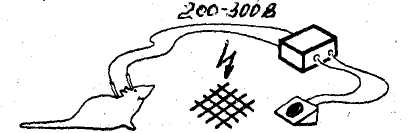 200-300 В